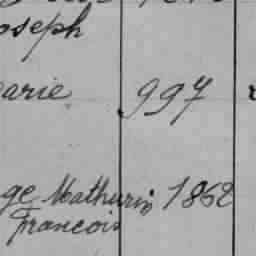 oseph
arie 997
ge Mathurin 1862
Francois